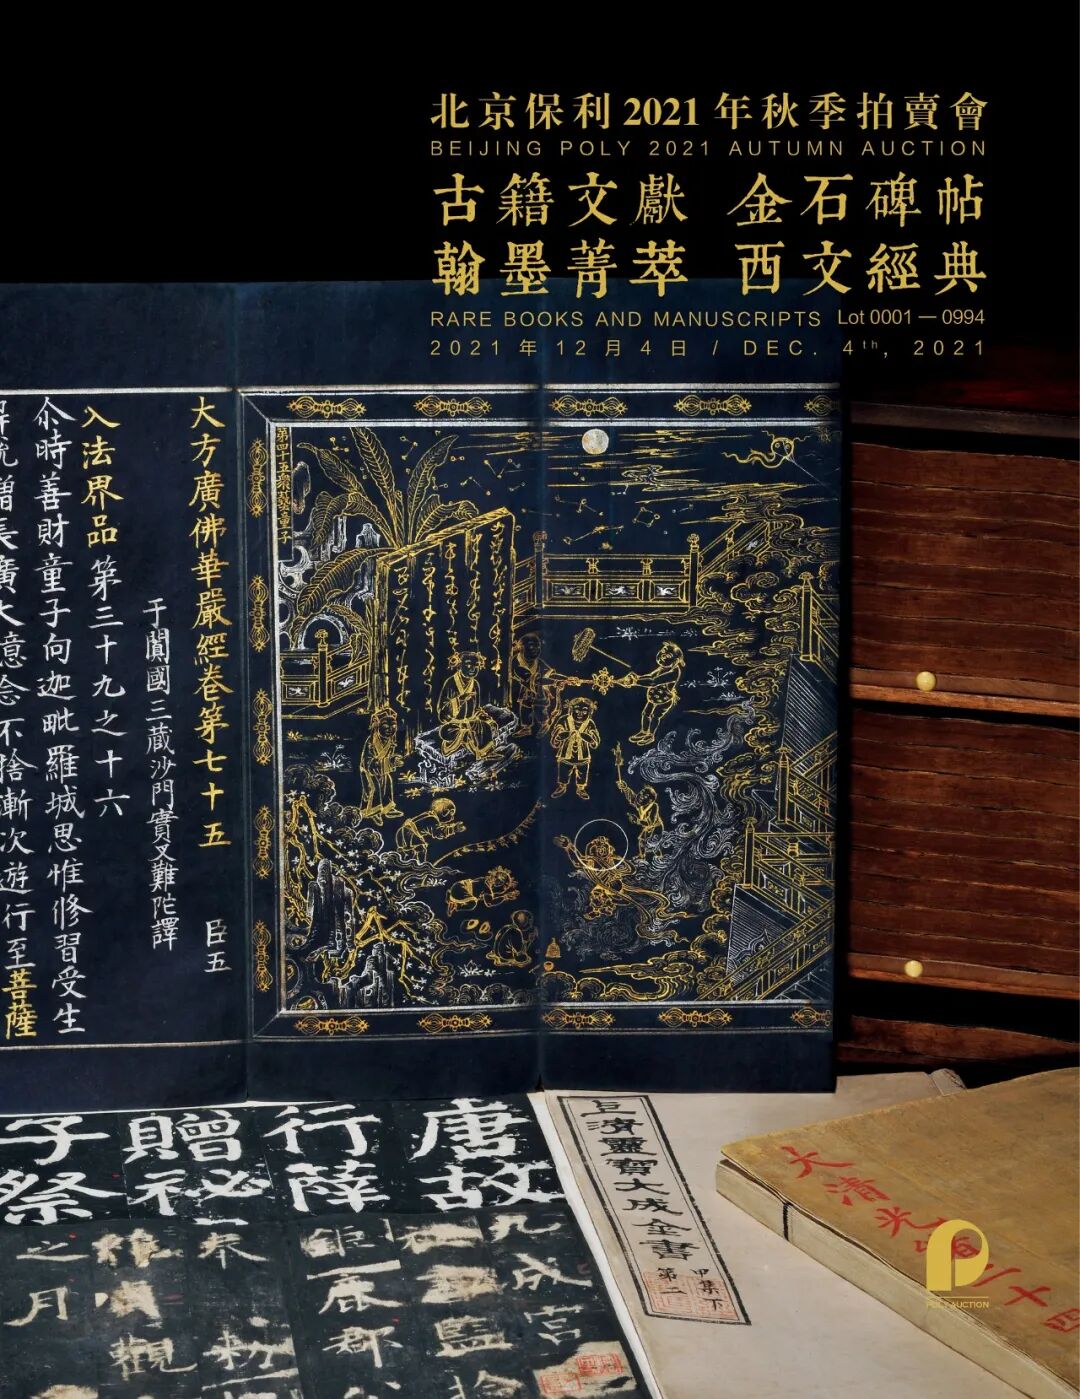 北京保利2021年秋季拍賣會
BEIJING POLY 2021 AUTUMN AUCTION
古籍文獻 金石碑帖
翰墨菁萃 西文經典
RARE BOOKS AND MANUSCRIPTS Lot 0001 — 0994
2021年12月4日 / DEC. 4th, 2021
第四十五衆藝童子
大方廣佛華嚴經卷第七十五 臣五
于闐國三藏沙門實叉難陀譯
入法界品第三十九之十六
尒時善財童子向迦毗羅城思惟修習受生
解脫增長廣大意念不捨漸次遊行至菩薩
唐故
行薛
贈祕
子祭
九成宮
監
郡公
觀
之月
上清靈寶大成金書
甲集下
第二
大清光
二十四
POLY AUCTION